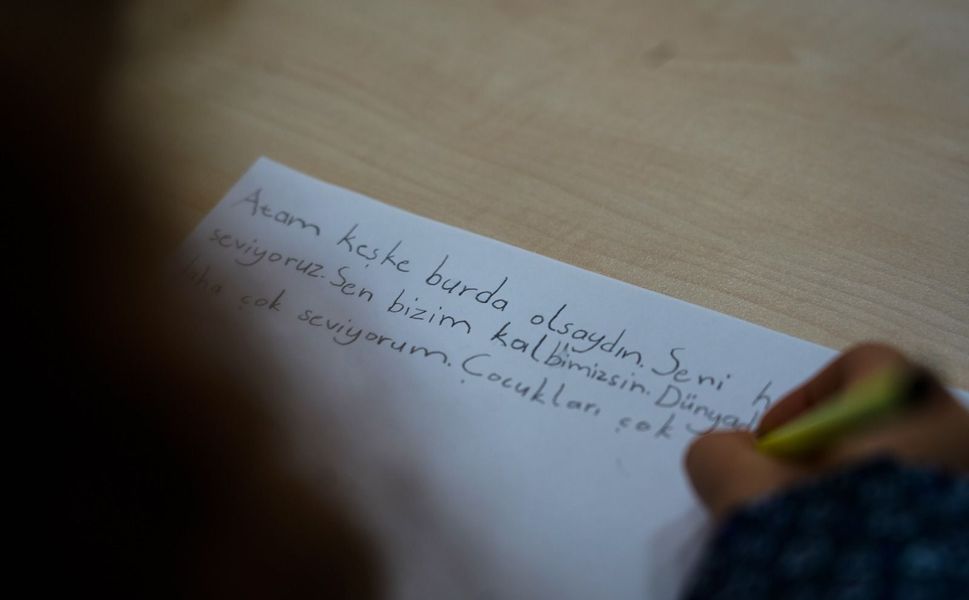 Atam keşke burda olsaydın. Seni
seviyoruz. Sen bizim kalbimizsin.
çok seviyorum. Çocukları çok